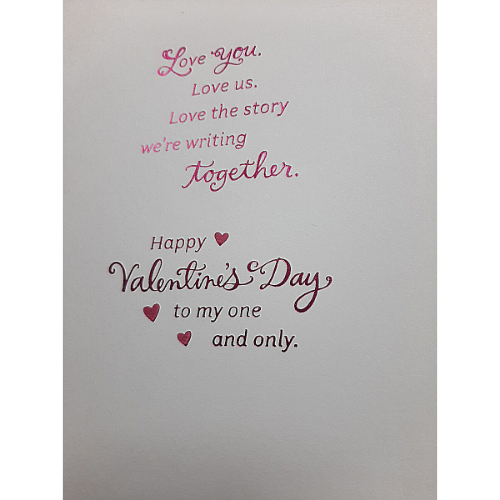 Love you.
Love us.
Love the story
we're writing
together.
Happy
Valentine's Day
to my one
and only.